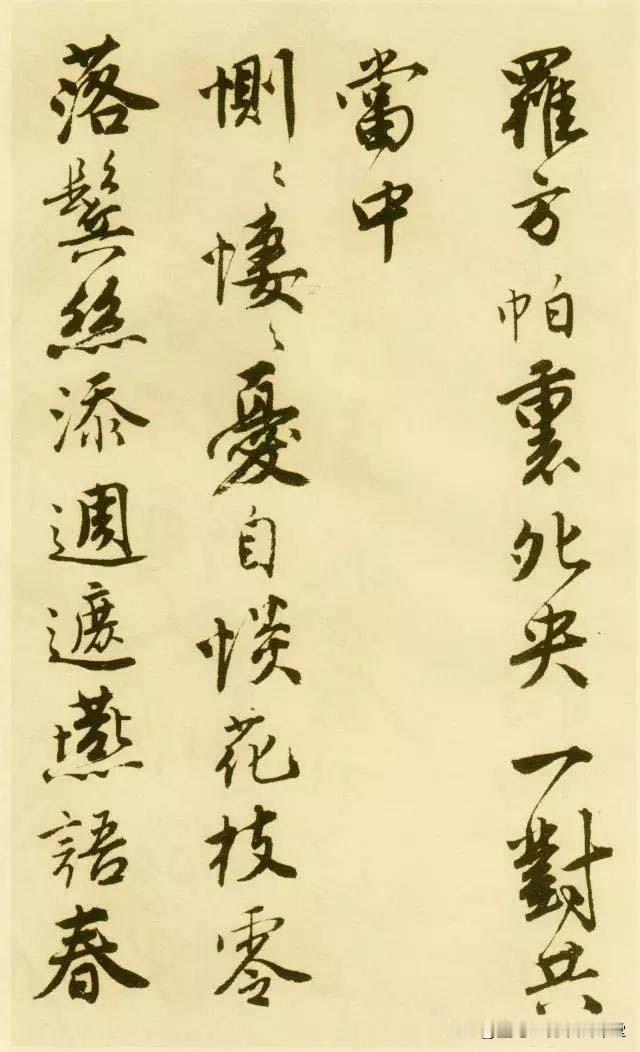 羅方帕裹夗央一對共
當中
惻〻悽〻憂自惔花枝零
落鬢絲添週遮燕語春